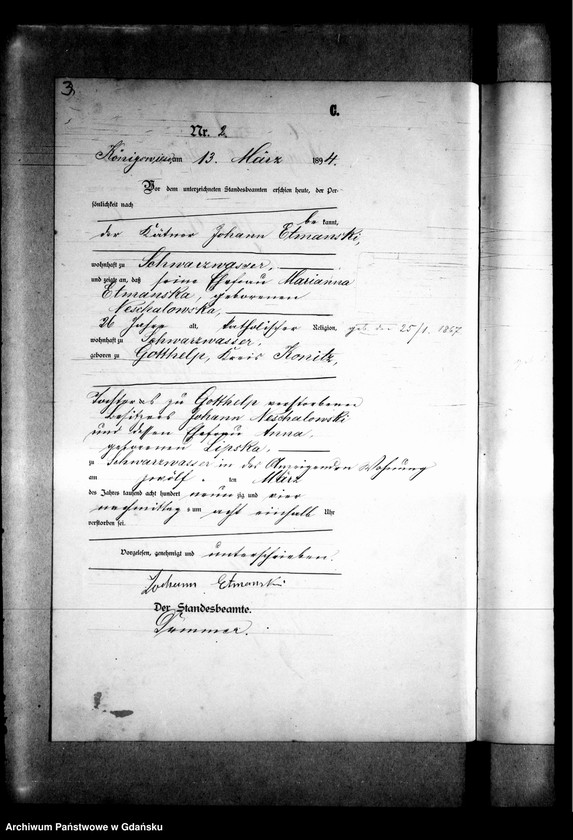 3
C.
Nr. 2.
Königswiese am 13. März 1894.
Vor dem unterzeichneten Standesbeamten erschien heute, der Per-
sönlichkeit nach
be kannt,
der Kätner Johann Etmanski,
wohnhaft zu Schwarzwasser,
und zeigte an, daß seine Ehefrau Marianna
Etmanska, geborenen
Neschalowska,
26 Jahre alt, katholischer Religion, geb. den 25/1. 1867
wohnhaft zu Schwarzwasser,
geboren zu Gotthelp, Kreis Konitz,
Tochter des zu Gotthelp verstorbenen
Besitzers Johann Neschalowski
und dessen Ehefrau Anna,
geborenen Lipska,
zu Schwarzwasser in des Anzeigenden Wohnung
am zwölf ten März
des Jahres tausend acht hundert neun zig und vier
nachmittag s um acht einhalb Uhr
verstorben sei.
Vorgelesen, genehmigt und unterschrieben.
Johann Etmanski
Der Standesbeamte.
Archiwum Państwowe w Gdańsku